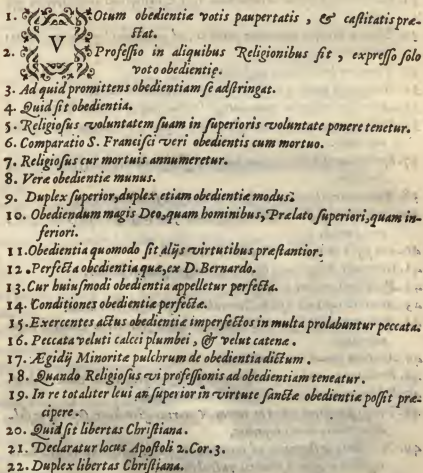 1. VOtum obedientiæ votis paupertatis, & castitatis præ-
stat.
2. Professio in aliquibus Religionibus fit, expresso solo
voto obedientię.
3. Ad quid promittens obedientiam se adstringat.
4. Quid sit obedientia.
5. Religiosus voluntatem suam in superioris voluntate ponere tenetur.
6. Comparatio S. Francisci veri obedientis cum mortuo.
7. Religiosus cur mortuis annumeretur.
8. Veræ obedientiæ munus.
9. Duplex superior, duplex etiam obedientiæ modus.
10. Obediendum magis Deo, quam hominibus, Prælato superiori, quam in-
feriori.
11. Obedientia quomodo sit alijs virtutibus præstantior.
12. Perfecta obedientia quæ, ex D. Bernardo.
13. Cur huiusmodi obedientia appelletur perfecta.
14. Conditiones obedientiæ perfectæ.
15. Exercentes actus obedientiæ imperfectos in multa prolabuntur peccata.
16. Peccata veluti calcei plumbei, & velut catenæ.
17. Ægidij Minoritæ pulchrum de obedientia dictum.
18. Quando Religiosus vi professionis ad obedientiam teneatur.
19. In re totaliter leui an superior in virtute sanctæ obedientiæ possit præ-
cipere.
20. Quid sit libertas Christiana.
21. Declaratur locus Apostoli 2. Cor. 3.
22. Duplex libertas Christiana.